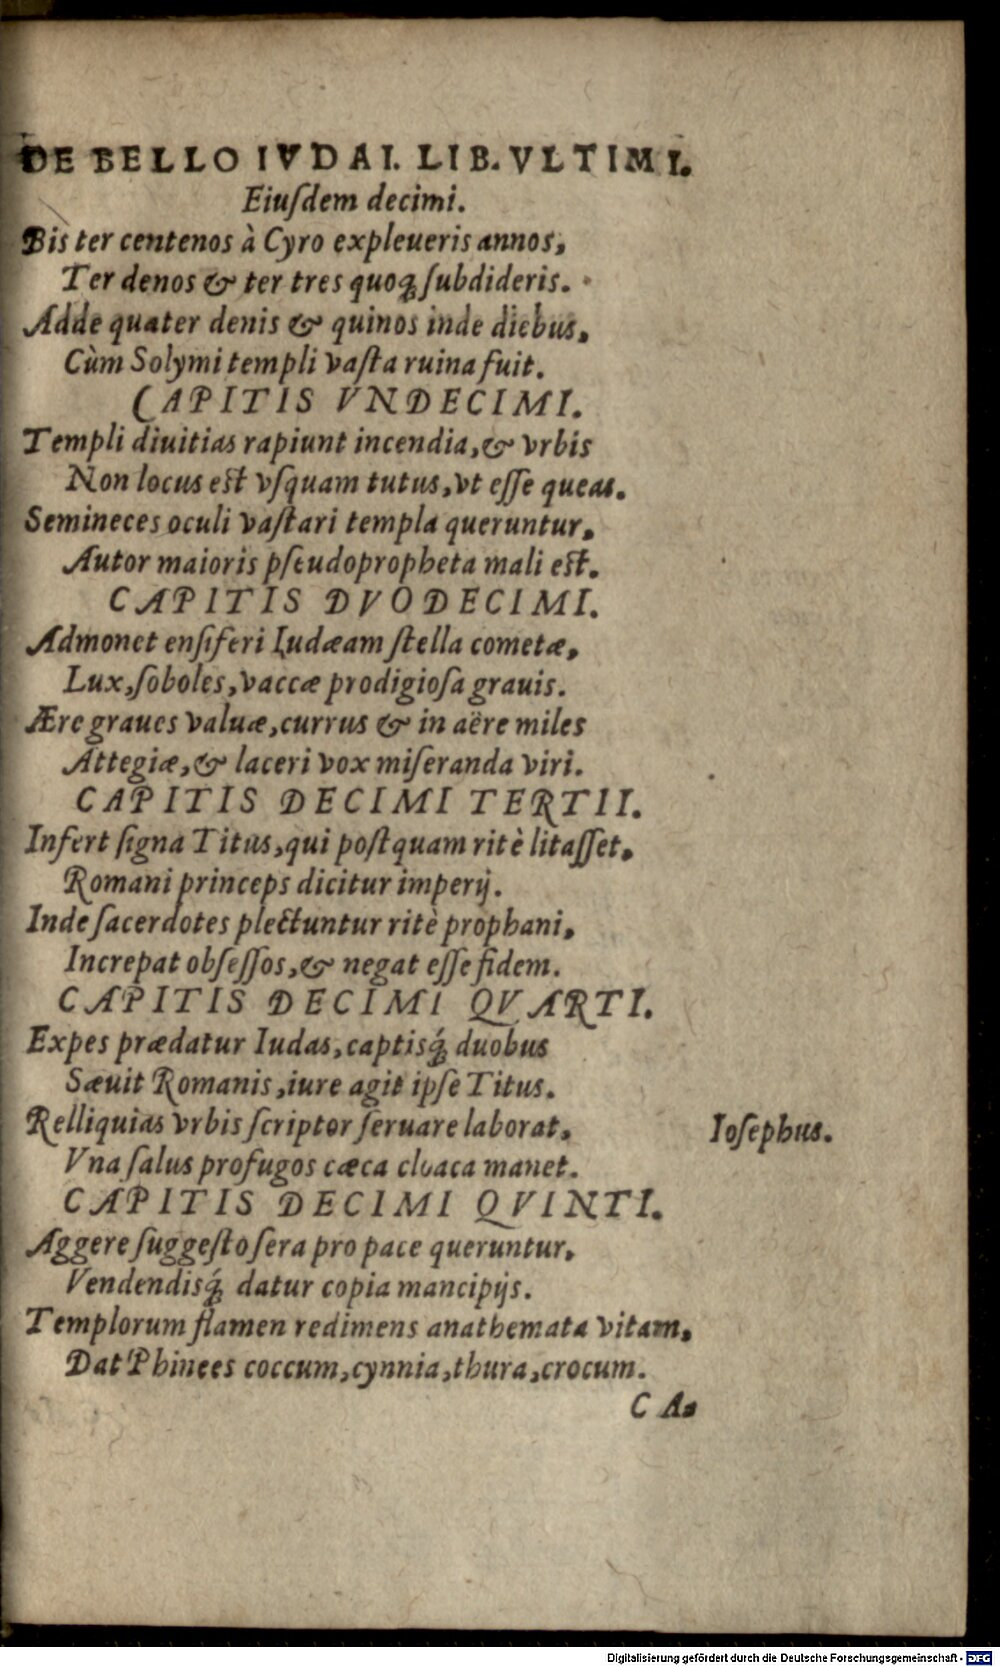 DE BELLO IVDAI. LIB. VLTIMI.
Eiuſdem decimi.
Bis ter centenos à Cyro expleueris annos,
Ter denos & ter tres quoq̃ ſubdideris.
Adde quater denis & quinos inde diebus,
Cùm Solymi templi vaſta ruina fuit.
CAPITIS VNDECIMI.
Templi diuitias rapiunt incendia, & vrbis
Non locus est vſquam tutus, vt eſſe queas.
Semineces oculi vaſtari templa queruntur,
Autor maioris pſeudopropheta mali est.
CAPITIS DVODECIMI.
Admonet enſiferi Iudæam ſtella cometæ,
Lux, ſoboles, vaccæ prodigioſa grauis.
Ære graues valuæ, currus & in aëre miles
Attegiæ, & laceri vox miſeranda viri.
CAPITIS DECIMI TERTII.
Infert ſigna Titus, qui poſtquam ritè litaſſet,
Romani princeps dicitur imperij.
Inde ſacerdotes plectuntur ritè prophani,
Increpat obſeſſos, & negat eſſe fidem.
CAPITIS DECIMI QVARTI.
Expes prædatur Iudas, captisq́ duobus
Sæuit Romanis, iure agit ipſe Titus.
Relliquias vrbis ſcriptor ſeruare laborat,
Ioſephus.
Vna ſalus profugos cæca cloaca manet.
CAPITIS DECIMI QVINTI.
Aggere ſuggeſto ſera pro pace queruntur,
Vendendisq́ datur copia mancipijs.
Templorum flamen redimens anathemata vitam,
Dat Phinees coccum, cynnia, thura, crocum.
CA-
Digitalisierung gefördert durch die Deutsche Forschungsgemeinschaft - DFG